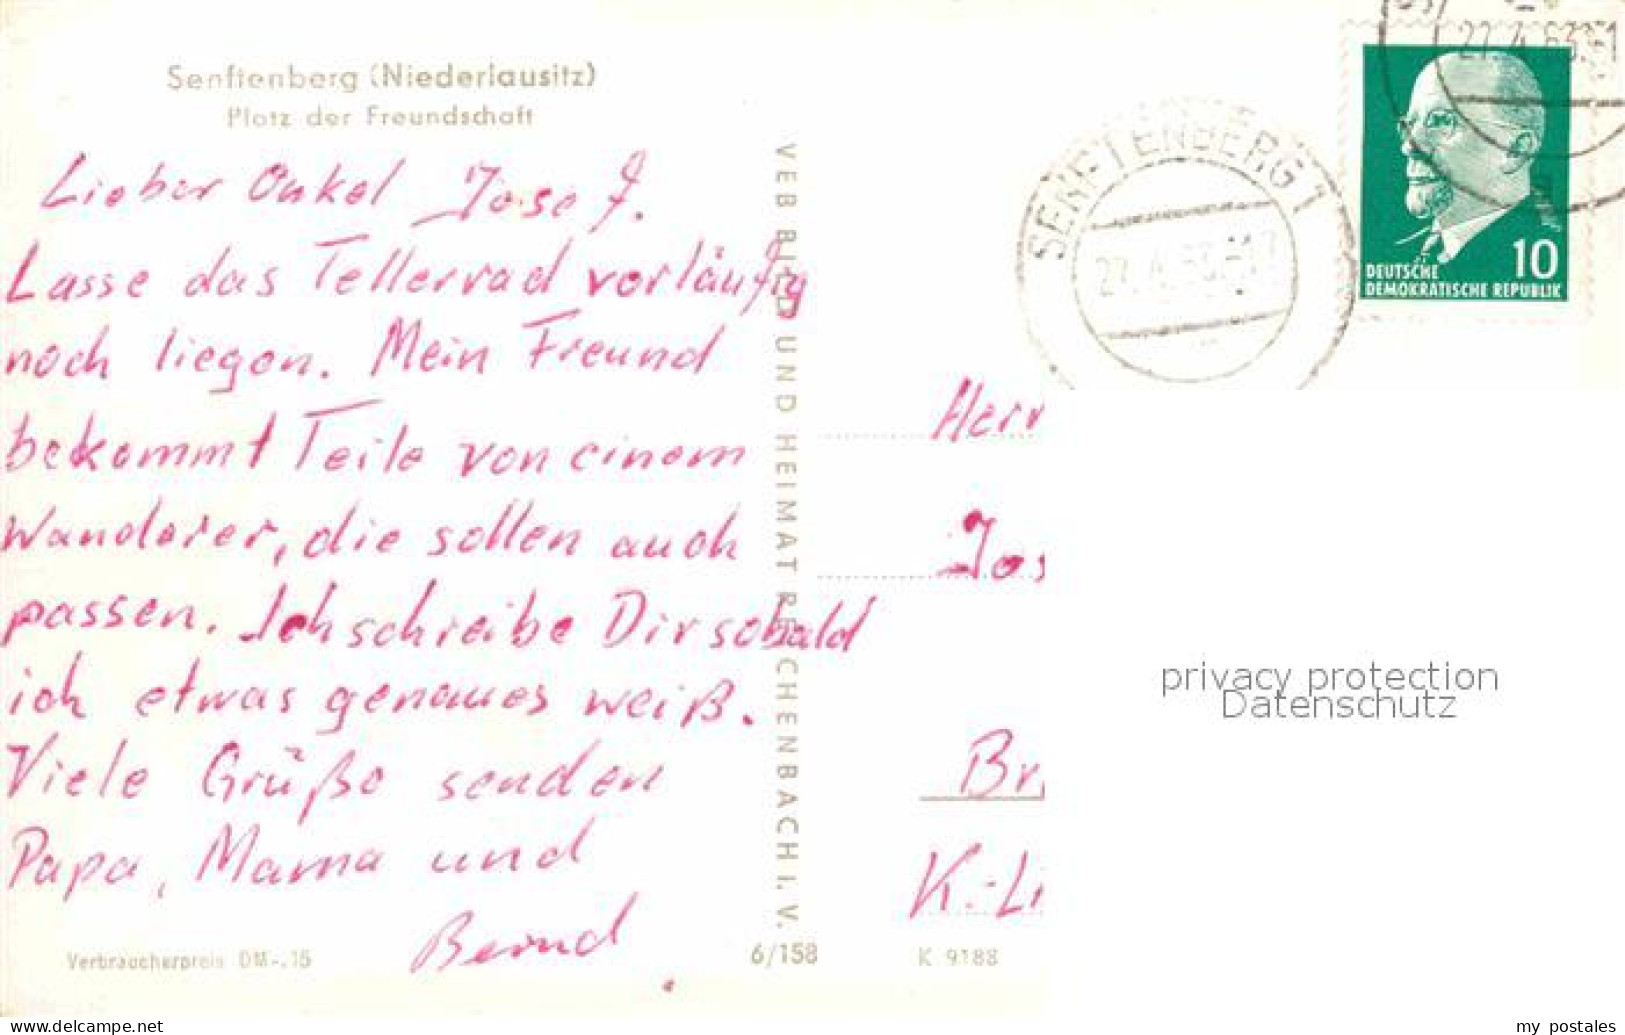 Senftenberg (Niederlausitz)
Platz der Freundschaft
Lieber Onkel Josef.
Lasse das Tellerrad vorläufig
noch liegen. Mein Freund
bekommt Teile von einem
Wanderer, die sollen auch
passen. Ich schreibe Dir sobald
ich etwas genaues weiß.
Viele Grüße senden
Papa, Mama und
Bernd
Verbraucherpreis DM -.15
6/158
K 9188
VEB BILD UND HEIMAT REICHENBACH I. V.
SENFTENBERG 1
27.4.63
27.4.63
10
DEUTSCHE
DEMOKRATISCHE REPUBLIK
Herr
Jos
Br
K.-Li
privacy protection
Datenschutz
www.delcampe.net
my_postales